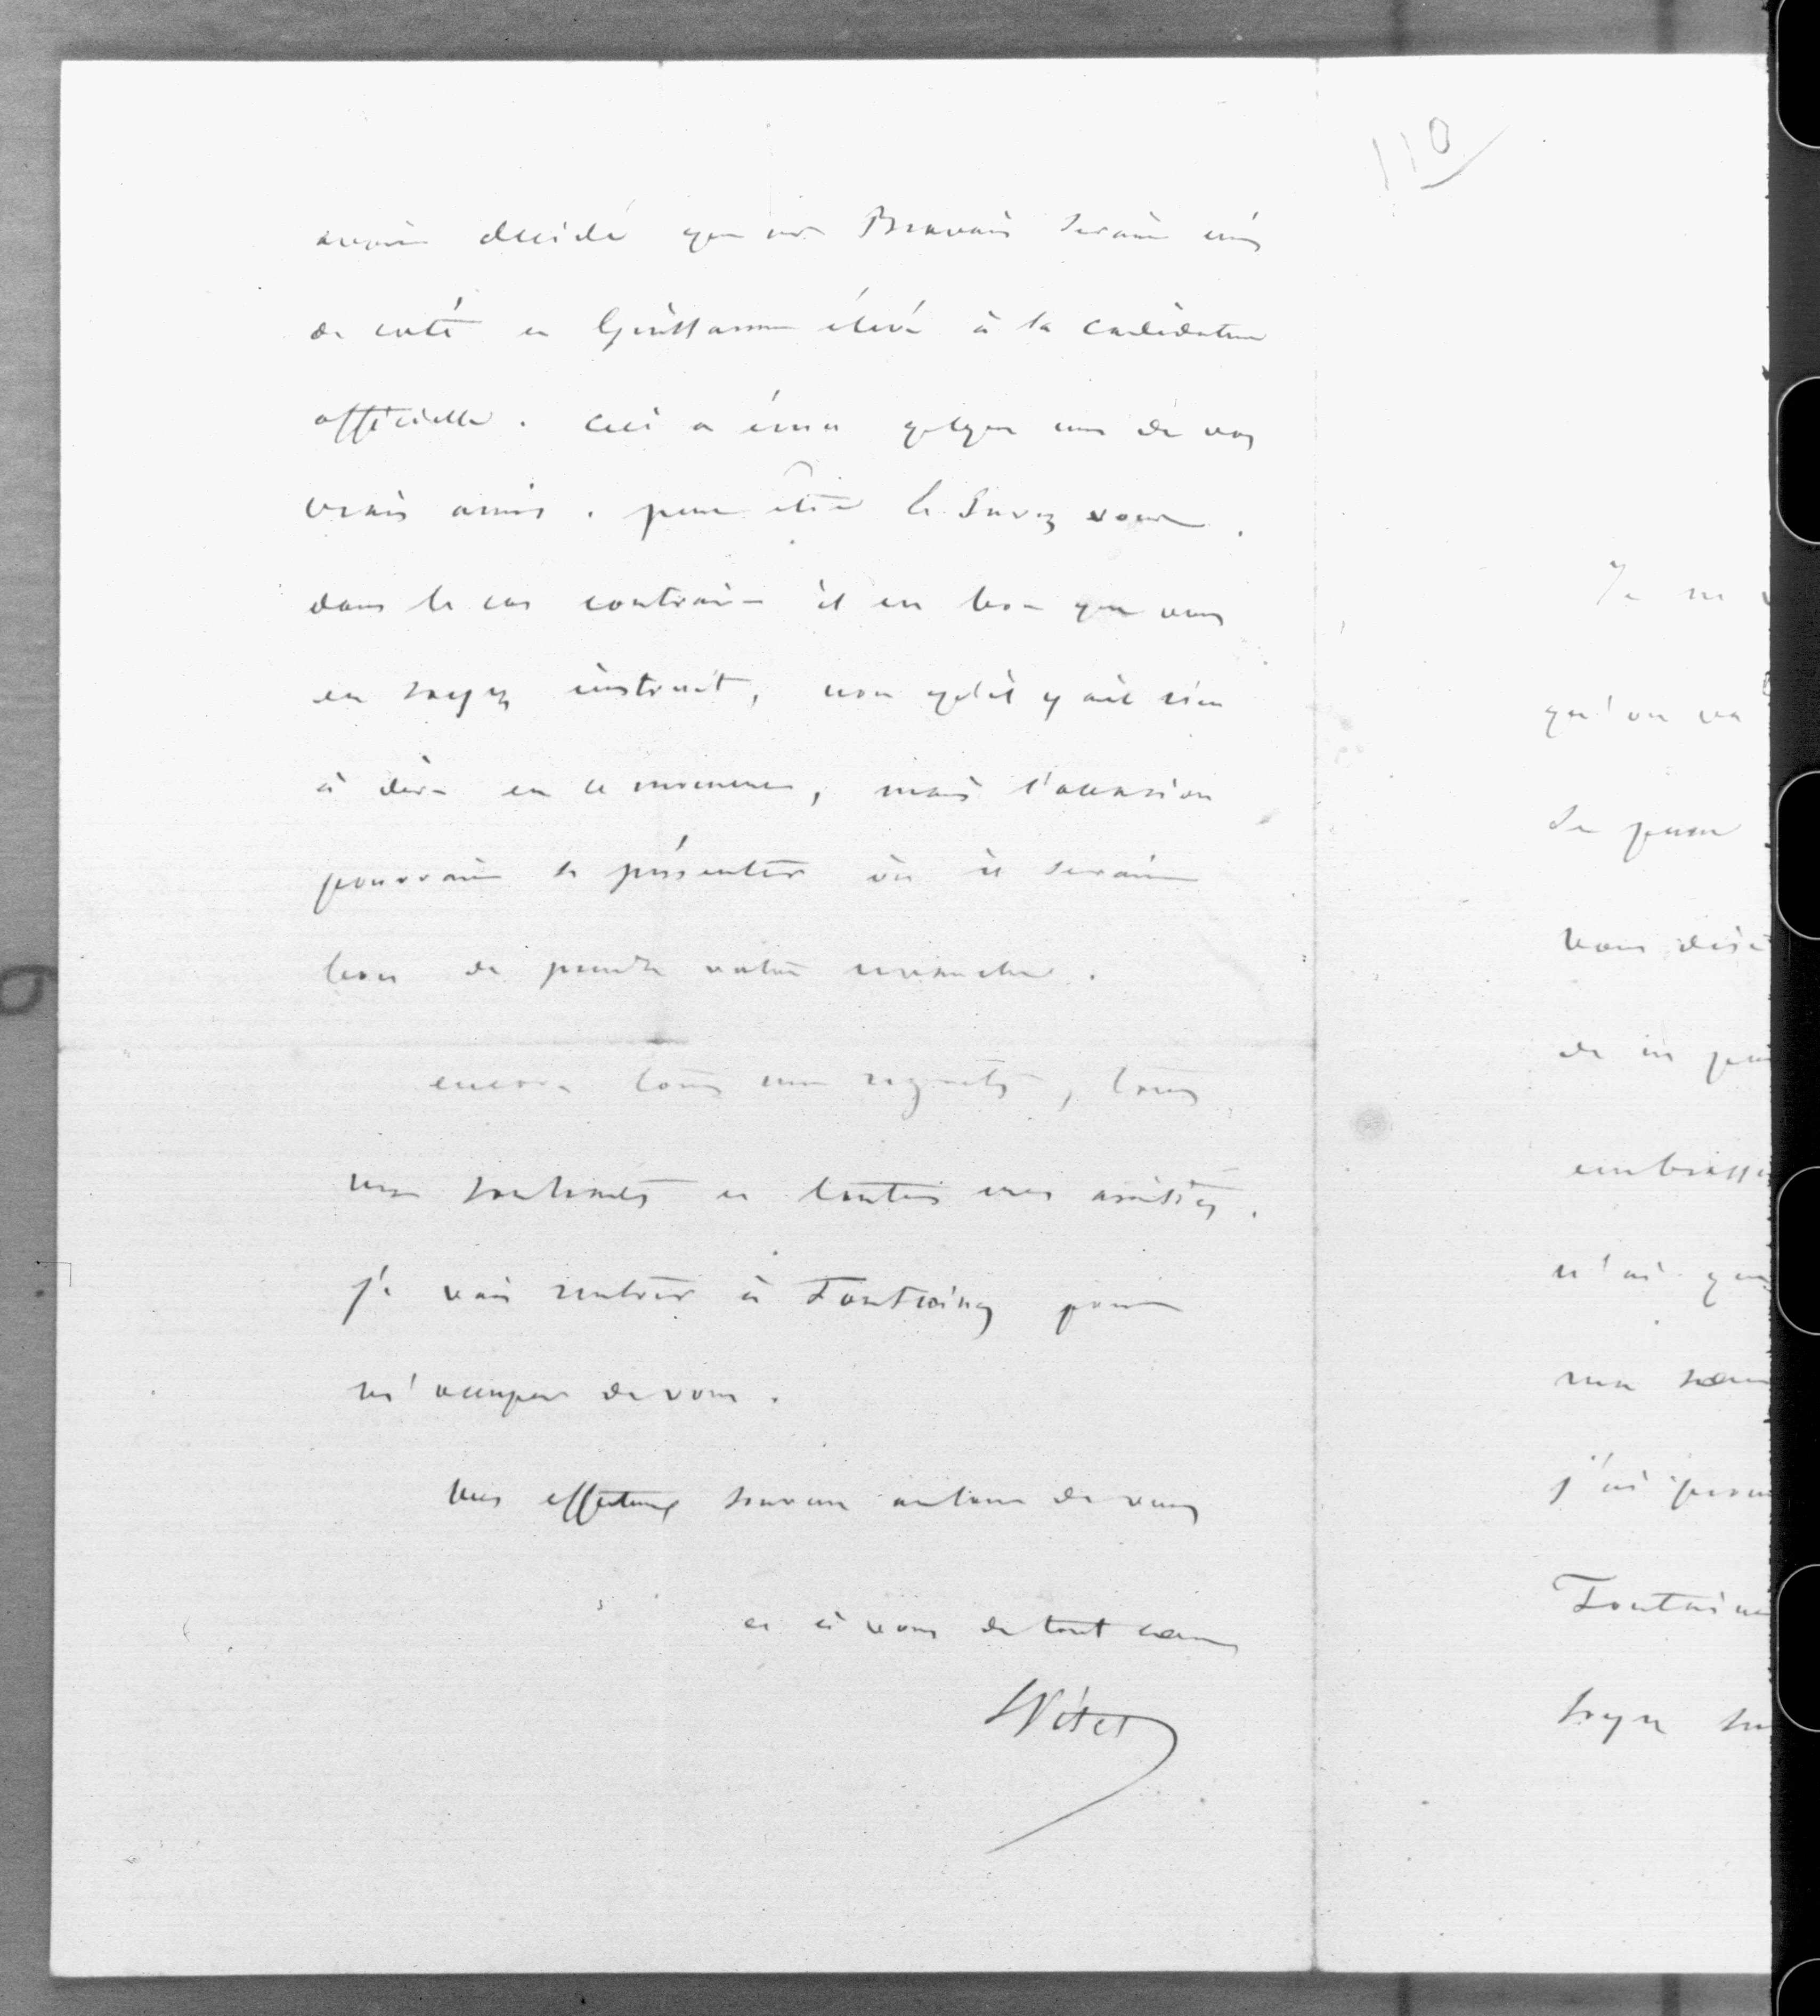 avait décidé que mr Bravais serait mis
de coté et élevé à la candidature
officielle. ceci a ému quelques uns de vos
vrais amis. peut être le savez vous.
dans le cas contraire il est bon que vous
en soyez instruit, non qu'il y ait rien
à dire en ce moment, mais l'occasion
pourrait se présenter où il serait
bon de prendre votre revanche.
encore tous mes regrets, tous
mes souhaits et toutes mes amitiés.
je vais rentrer à pour
m'occuper de vous.
autour de vous
et à vous de tout coeur
Vitet
110
Je ne
qu'on va
de
vous
de
embrass
n'ai que
ma soeur
j'ai
Fontaine
soyez